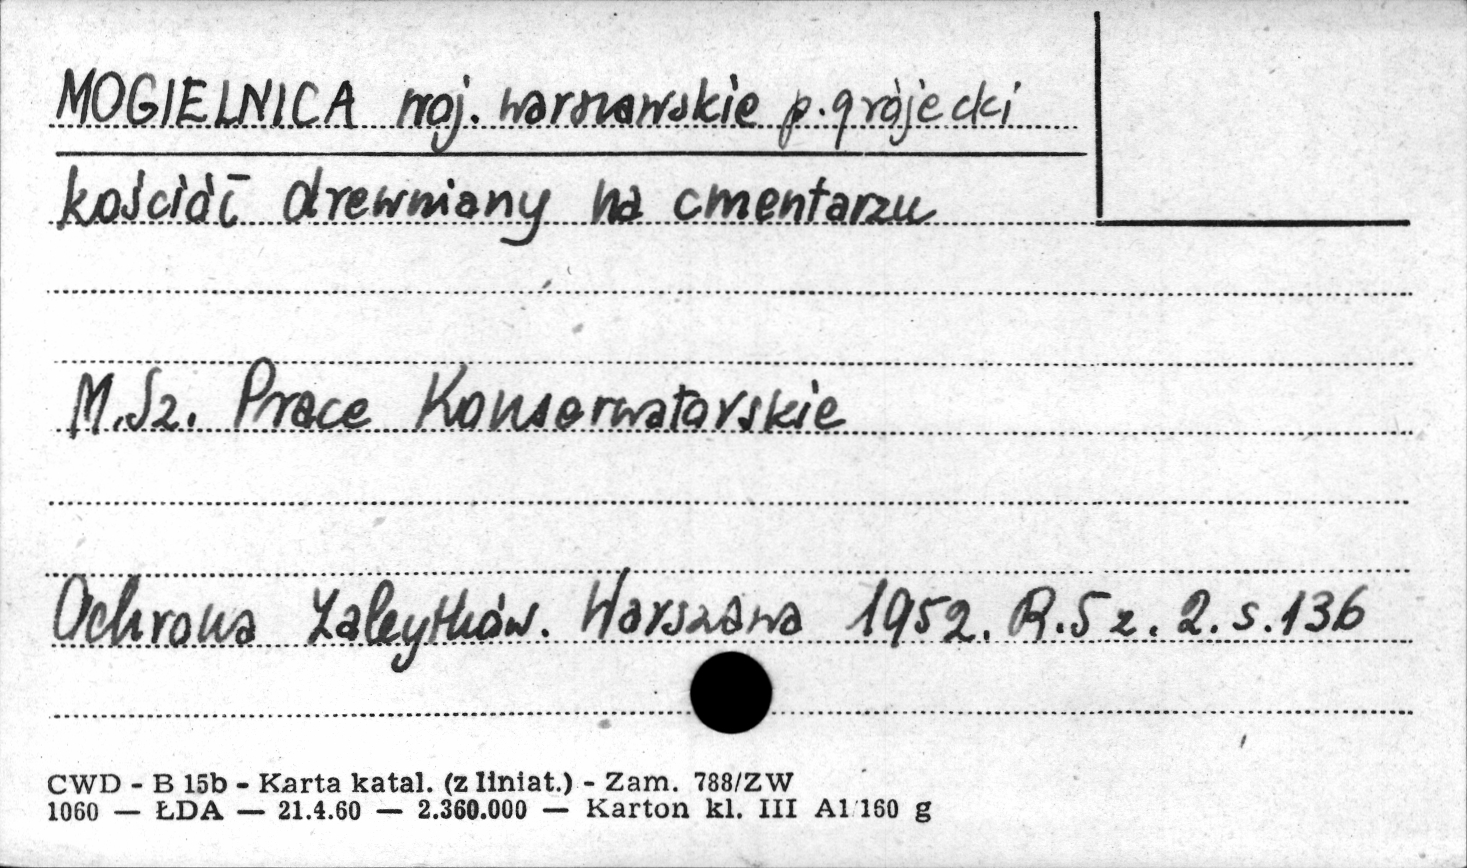 MOGIELNICA woj. warszawskie p. grójecki
kościół drewniany na cmentarzu
M.Sz. Prace Konserwatorskie
Ochrona Zabytków. Warszawa 1952. R.5 z. 2. s. 136
CWD - B 15b - Karta katal. (z liniat.) - Zam. 788/ZW
1060 — ŁDA — 21.4.60 — 2.360.000 — Karton kl. III A1 160 g